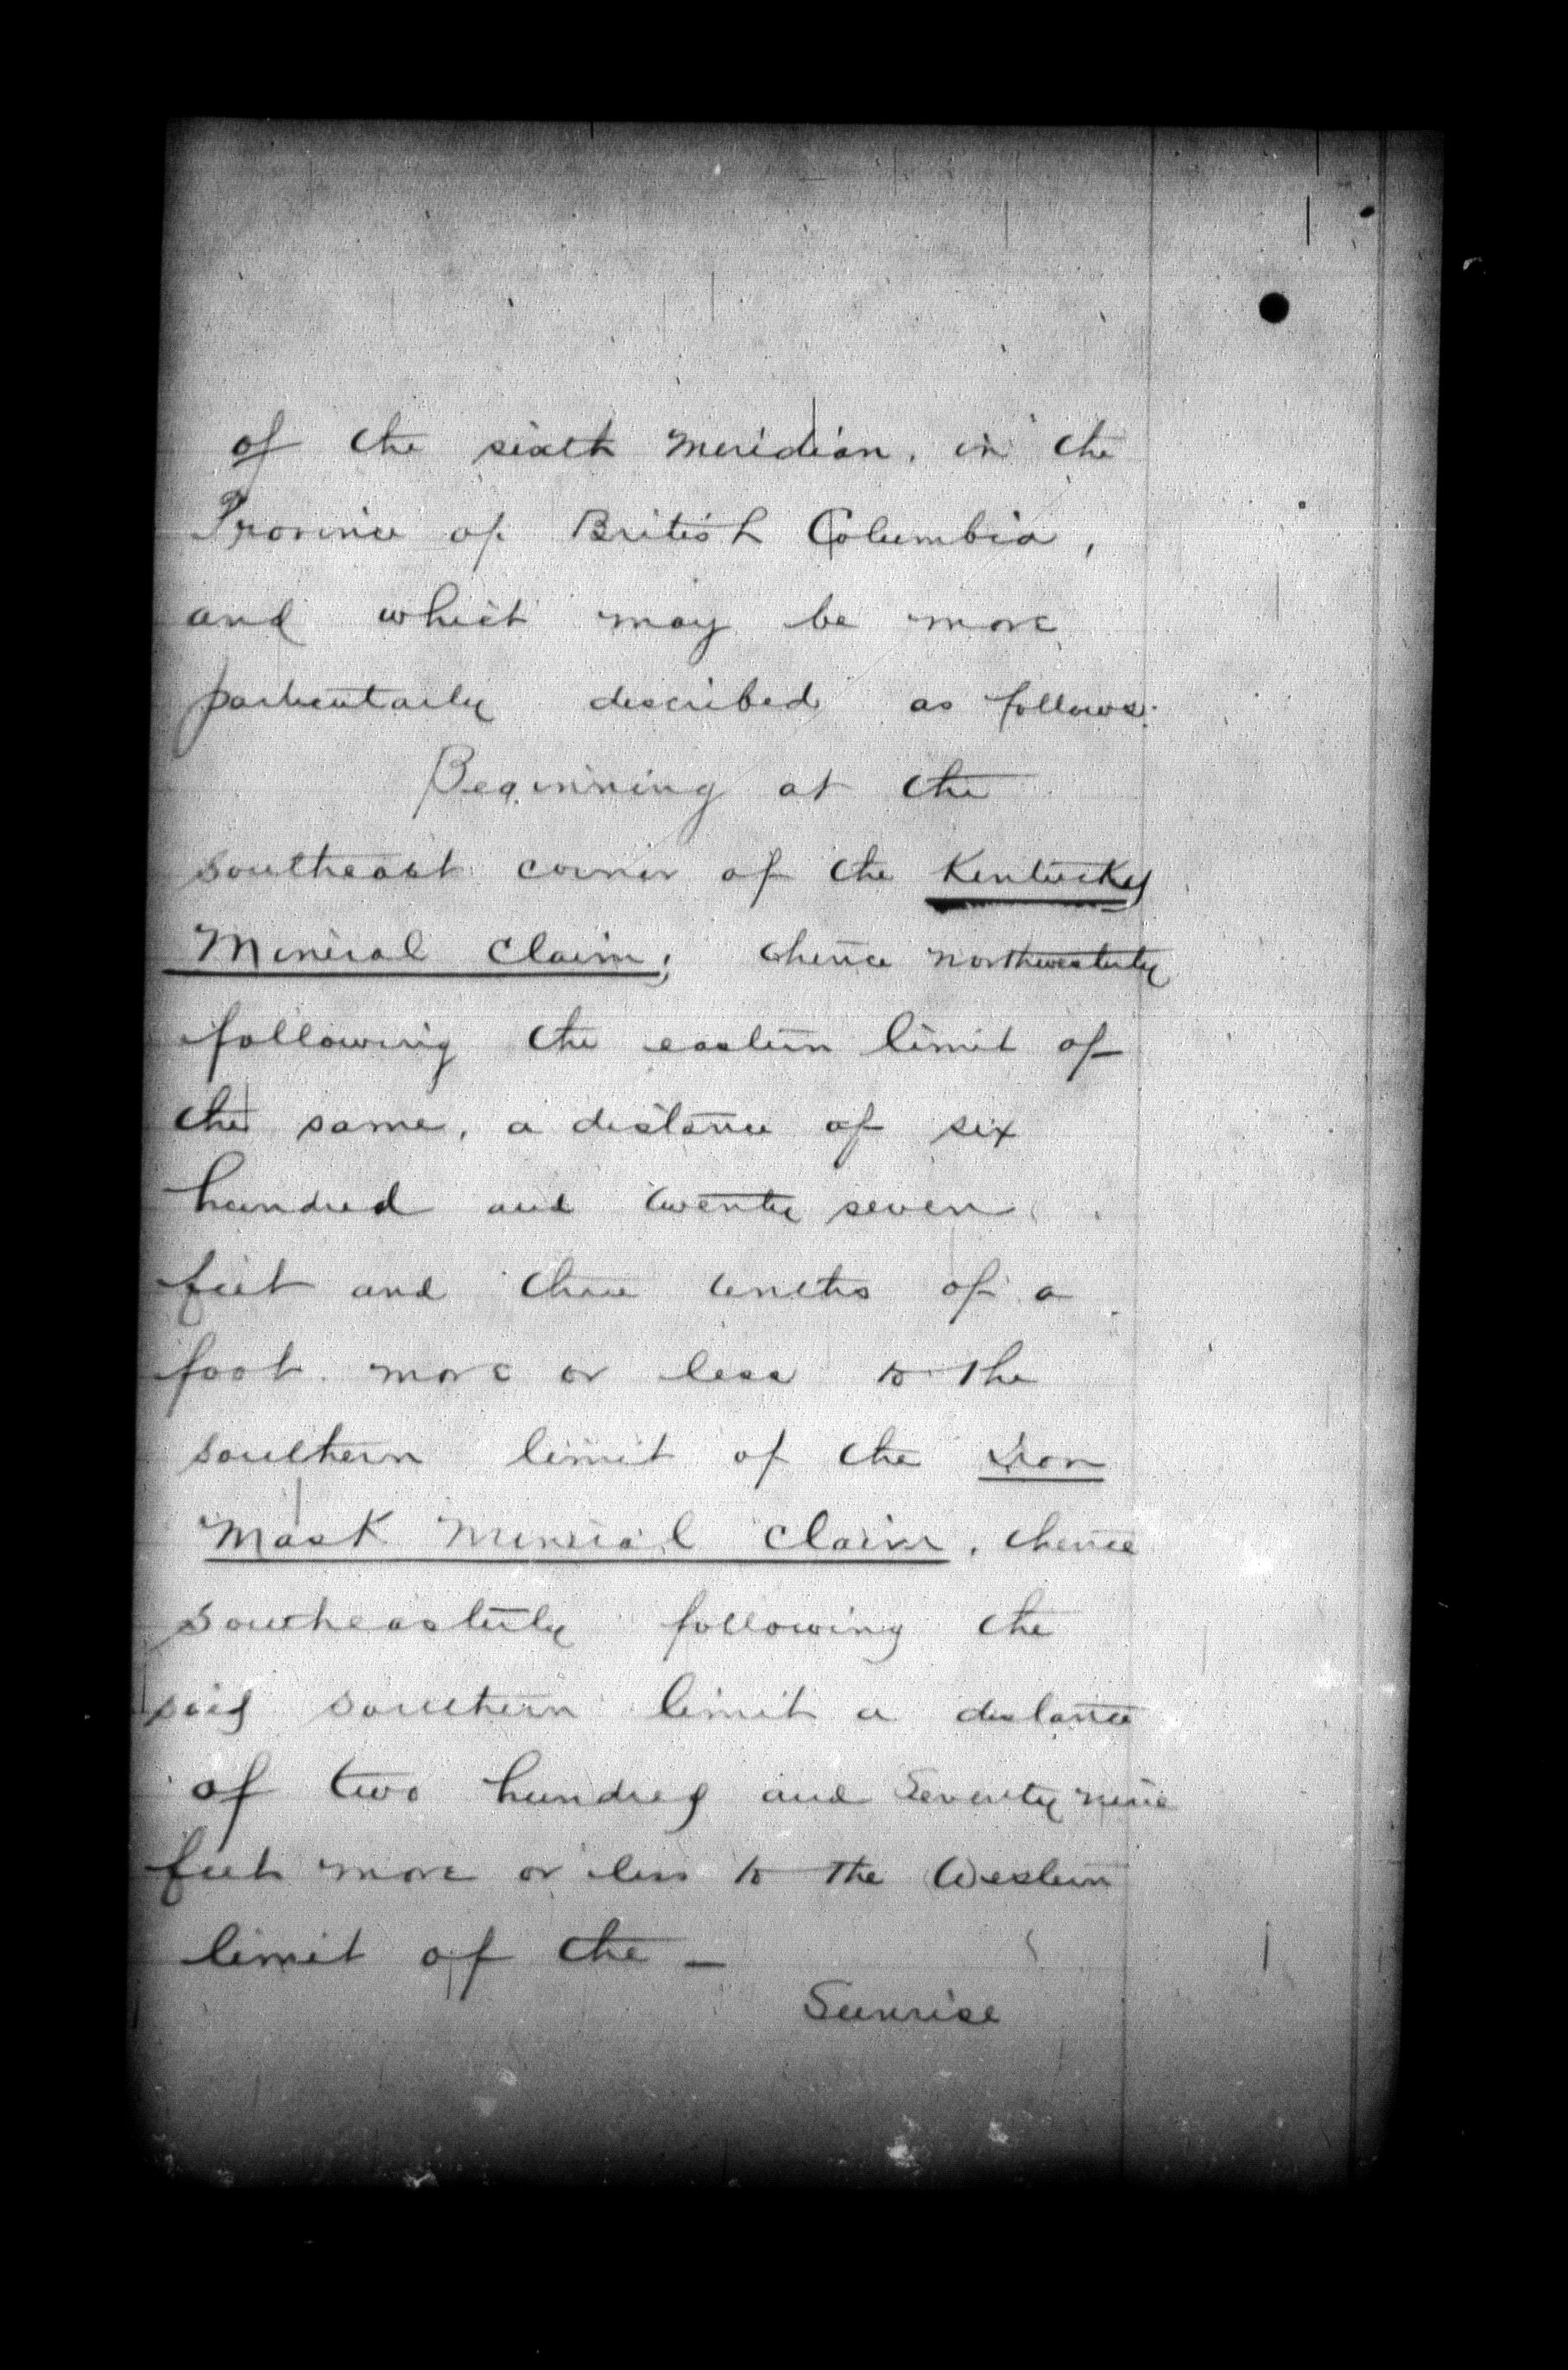 of the sixth meridian, in the
Province of British Columbia,
and which may be more
particularly described as follows:
Beginning at the
southeast corner of the Kentucky
Mineral Claim; thence northwesterly
following the eastern limit of
the same, a distance of six
hundred and twenty seven
feet and three tenths of a
foot more or less to the
southern limit of the Iron
Mask Mineral Claim, thence
southeasterly following the
said southern limit a distance
of two hundred and seventy nine
feet more or less to the Western
limit of the —
Sunrise